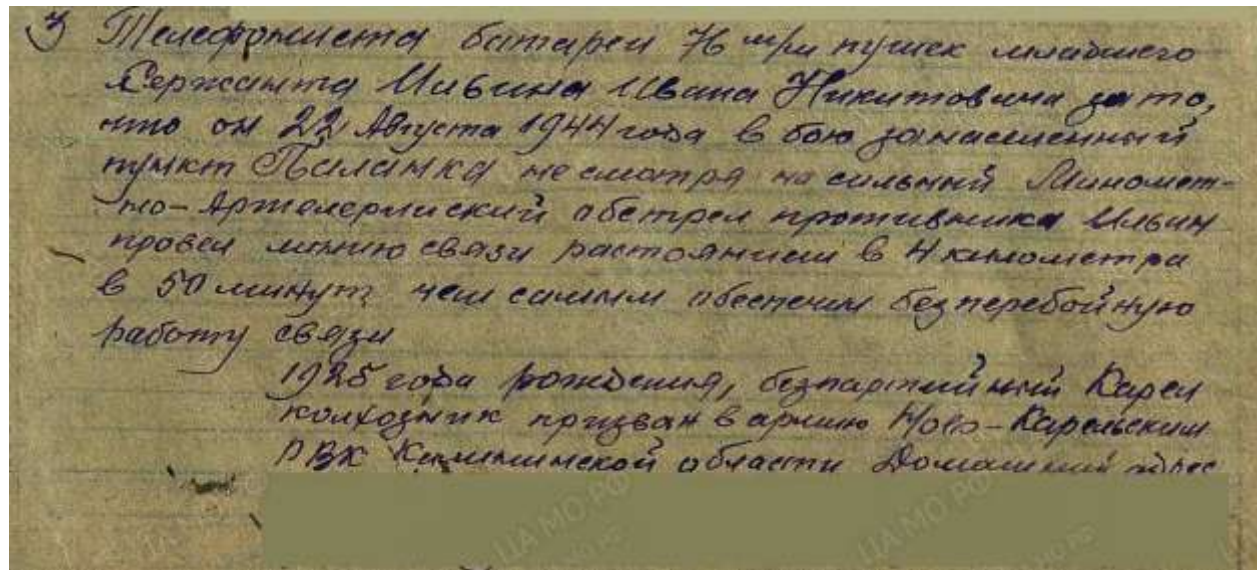 3) Телефониста батареи 76 м/м пушек младшего
Сержанта Ильина Ивана Никитовича за то,
что он 22 Августа 1944 года в бою за населенный
пункт Паланка не смотря на сильный Миномет-
но-Артелерийский обстрел противника Ильин
провел линию связи растоянием в 4 километра
в 50 минут, чем самым обеспечил безперебойную
работу связи
1925 года рождения, безпартийный Карел
колхозник призван в армию Ново-Карельским
РВК Калининской области Домашний адрес
ЦА МО РФ
ЦА МО РФ